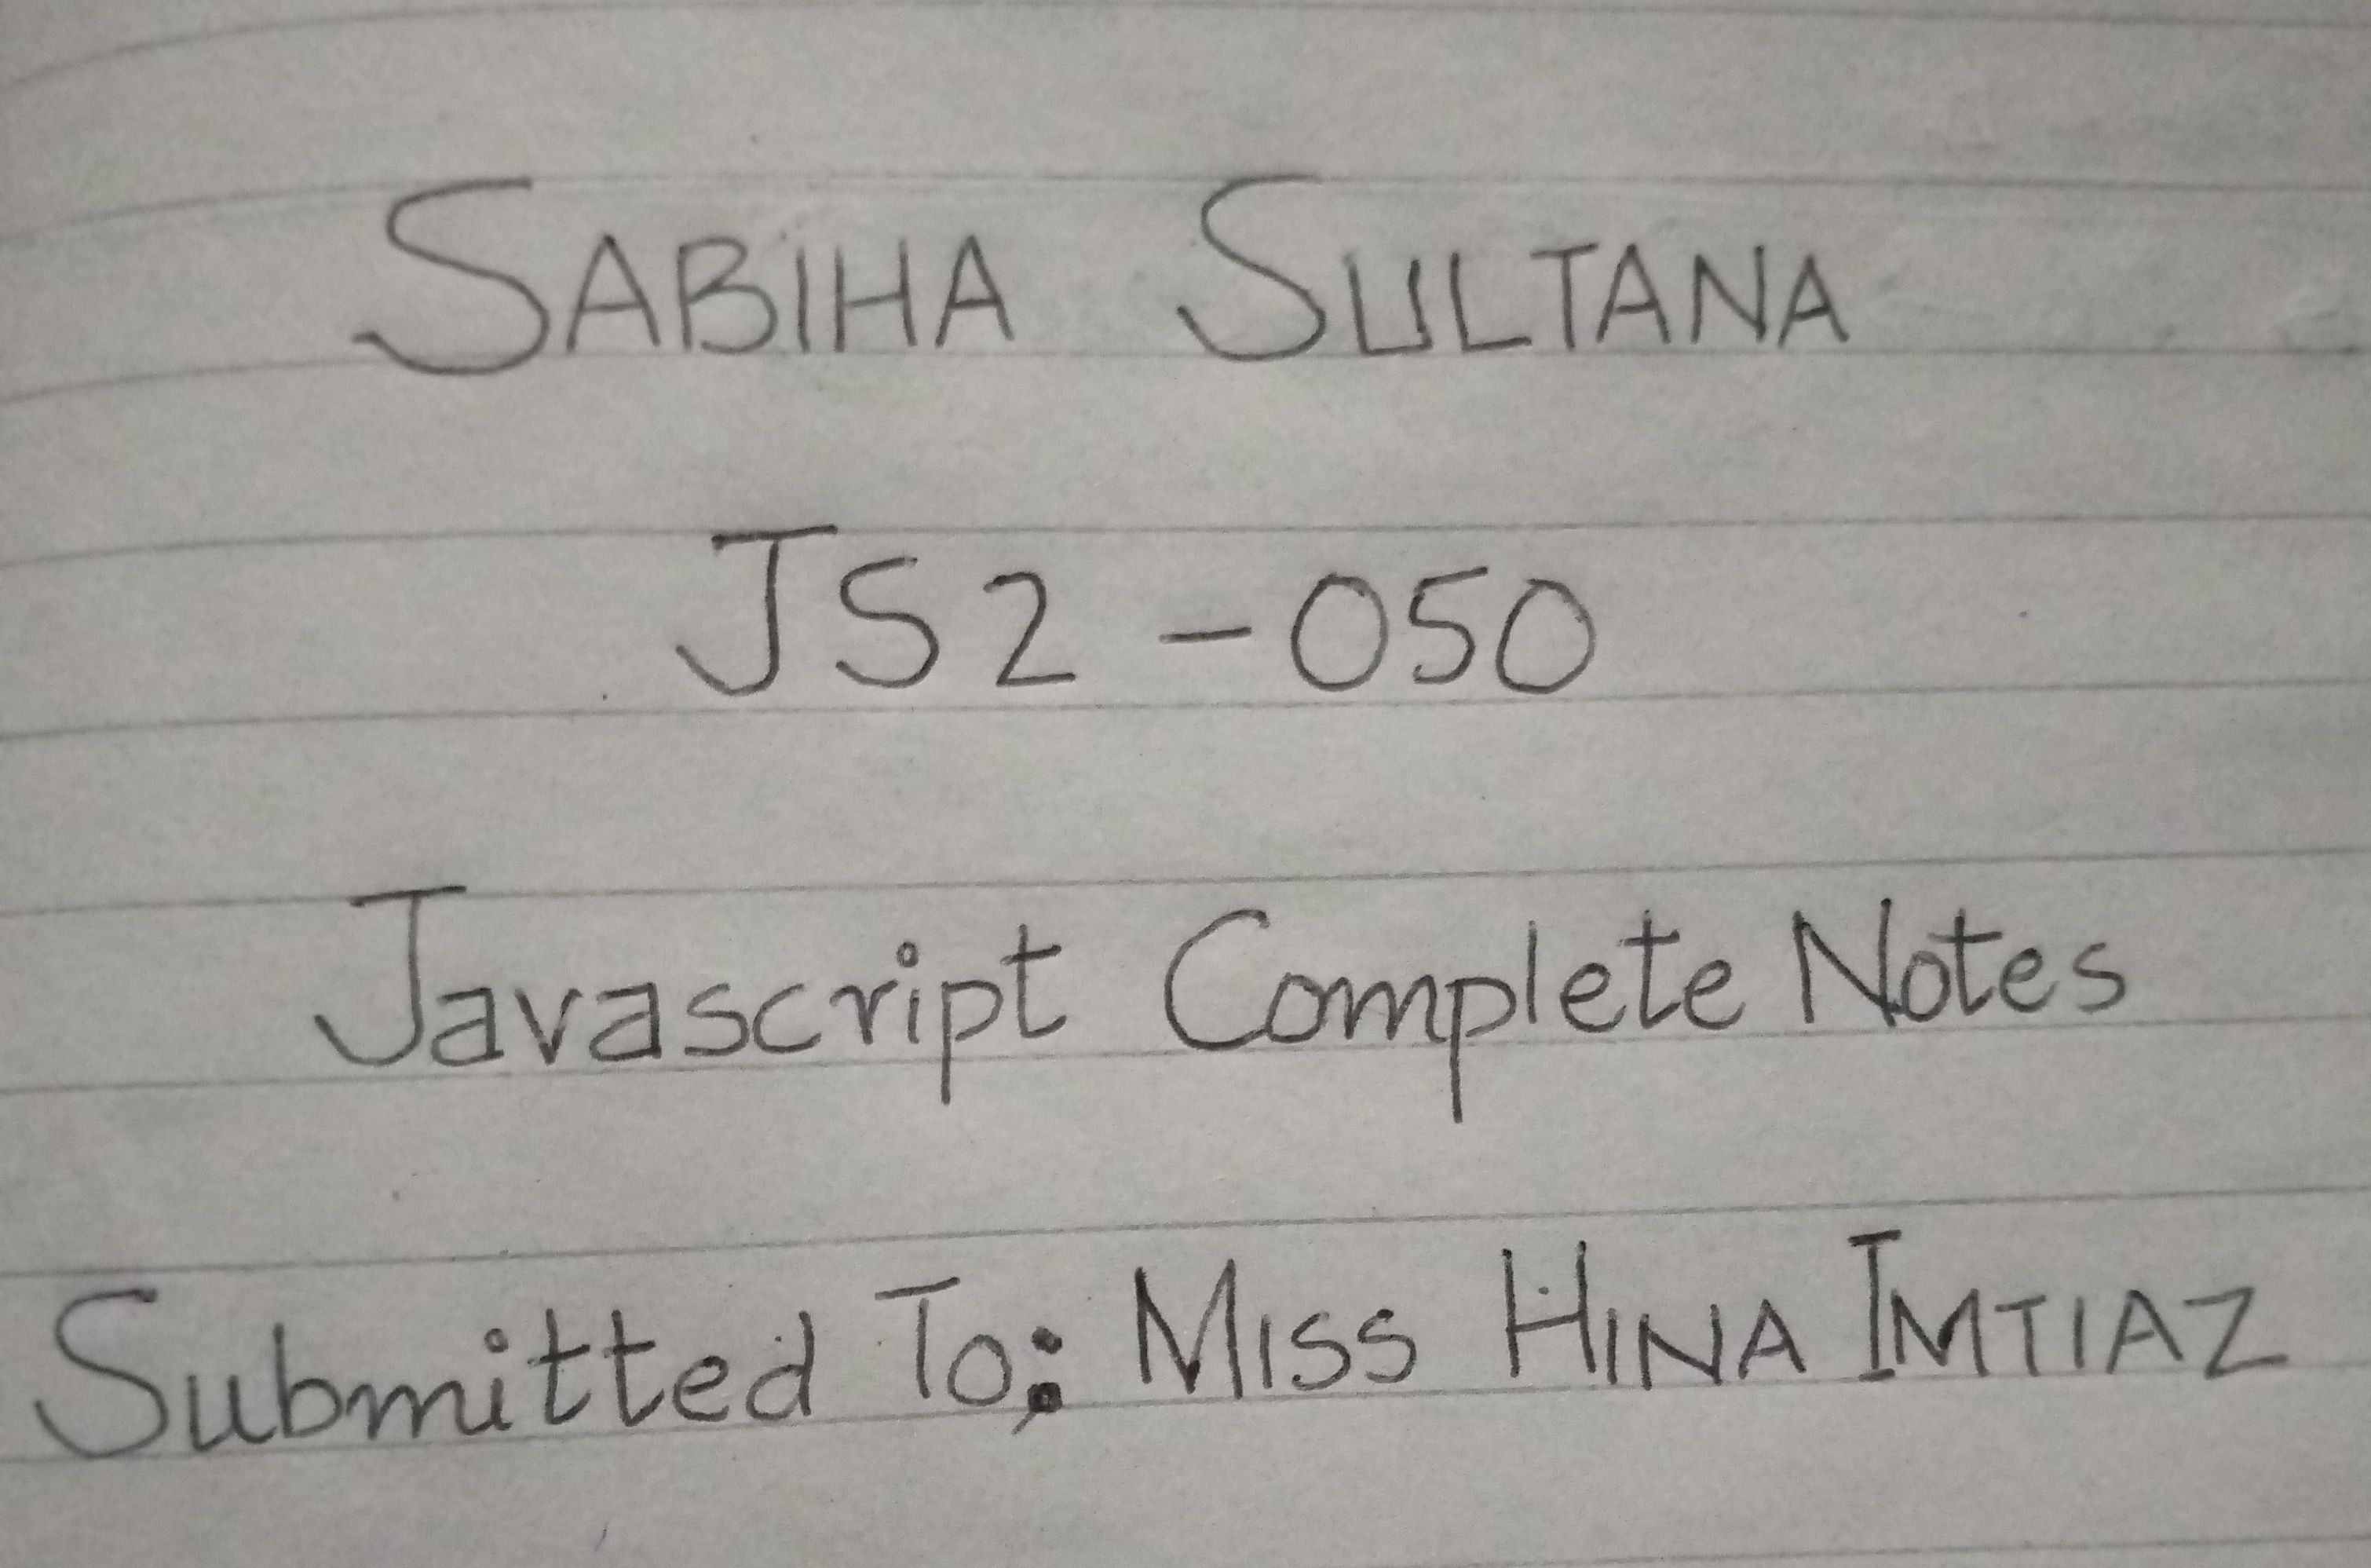 SABIHA SULTANA
JS2 - 050
Javascript Complete Notes
Submitted To: MISS HINA IMTIAZ